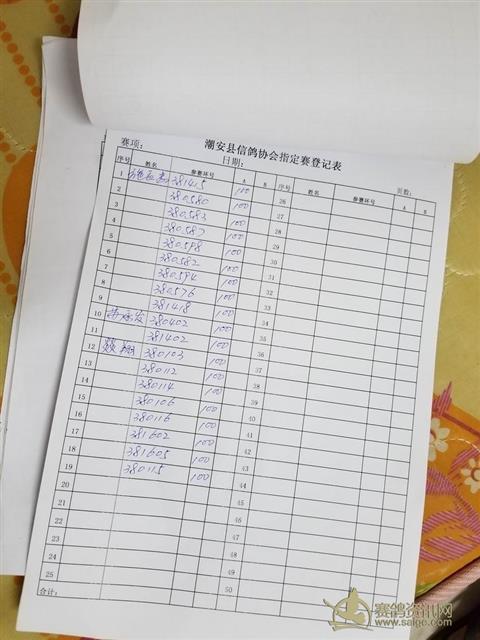 潮安县信鸽协会指定赛登记表
赛项： 日期： 页数：
序号 姓名 参赛环号 A B 序号 姓名 参赛环号 A B
1 381415 100 26
2 380580 100 27
3 380583 100 28
4 380587 100 29
5 380598 100 30
6 380582 100 31
7 380594 100 32
8 380576 100 33
9 381418 100 34
10 380402 100 35
11 381402 100 36
12 380103 100 37
13 380112 100 38
14 380114 100 39
15 380106 100 40
16 380116 100 41
17 381602 100 42
18 381605 100 43
19 380115 100 44
20 45
21 46
22 47
23 48
24 49
25 50
合计：
赛鸽资讯网
www.saige.com